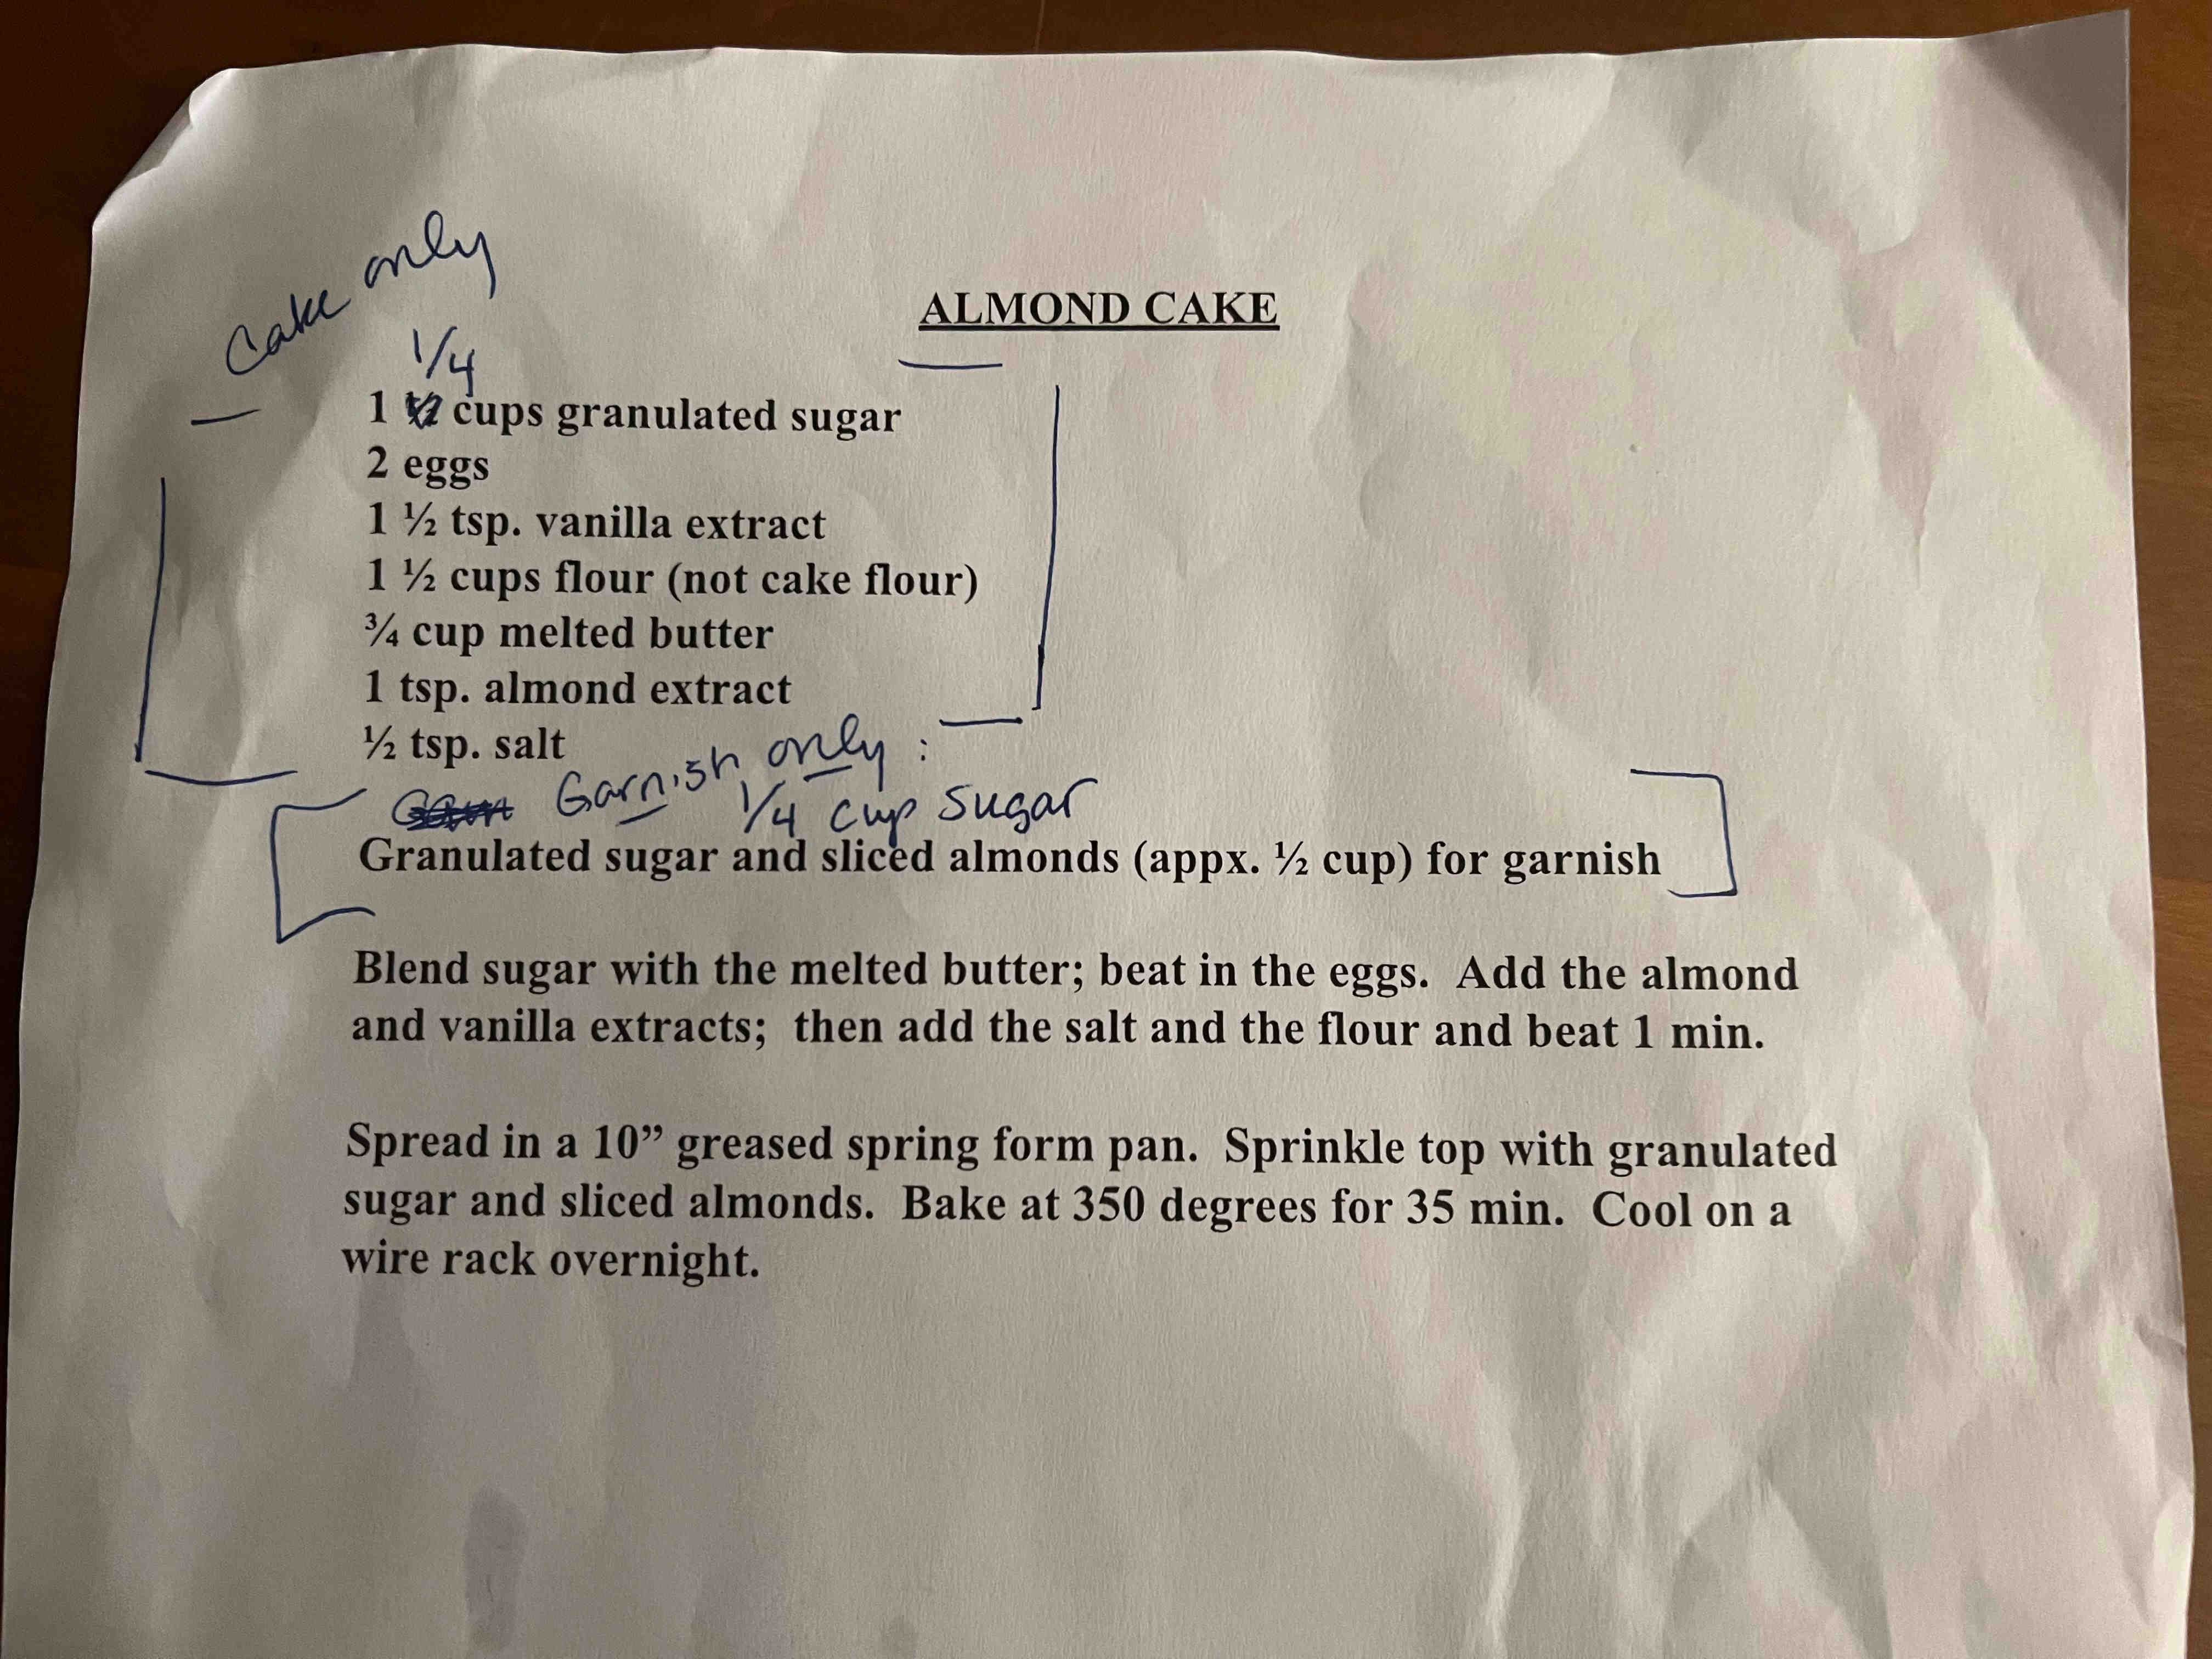 Cake only
ALMOND CAKE
1/4
1 ½ cups granulated sugar
2 eggs
1 ½ tsp. vanilla extract
1 ½ cups flour (not cake flour)
¾ cup melted butter
1 tsp. almond extract
½ tsp. salt
Garnish only :
1/4 cup sugar
Granulated sugar and sliced almonds (appx. ½ cup) for garnish
Blend sugar with the melted butter; beat in the eggs.  Add the almond
and vanilla extracts;  then add the salt and the flour and beat 1 min.
Spread in a 10” greased spring form pan.  Sprinkle top with granulated
sugar and sliced almonds.  Bake at 350 degrees for 35 min.  Cool on a
wire rack overnight.